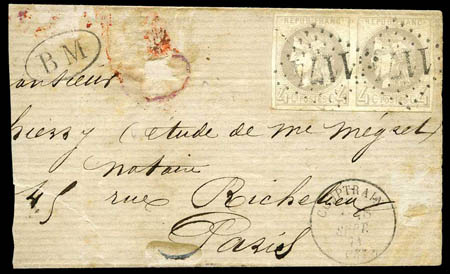 REPUB. FRANC. REPUB. FRANC.
1171 1171
4 4 4 4
BM
onsieur
hierry (étude de me Mégret)
notaire
45 rue Richelieu
Paris
SEPT.
71